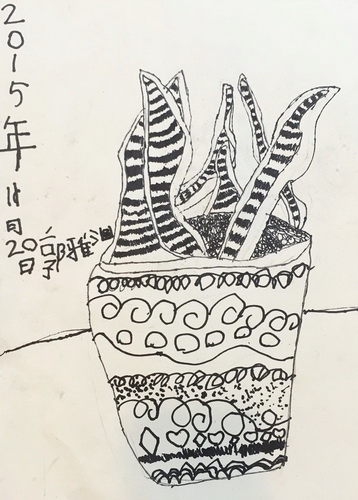 2015年11月20日
郭雅